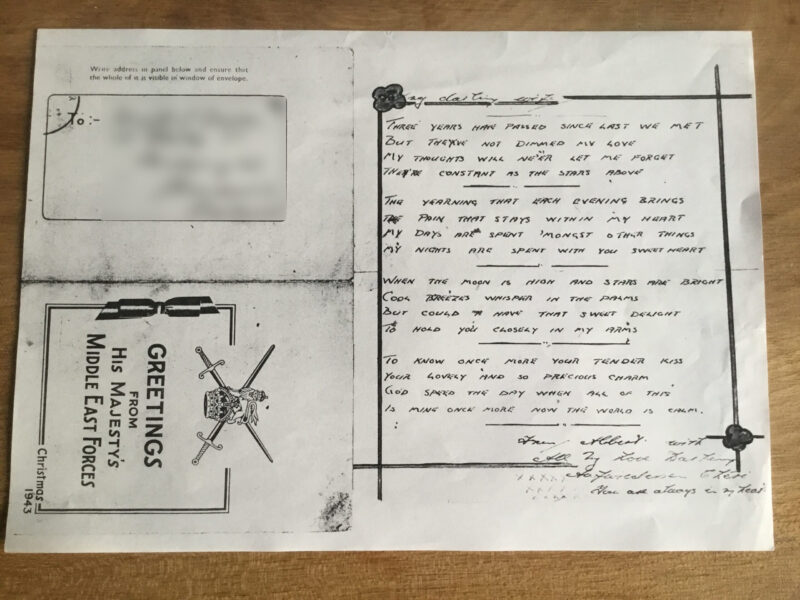 Write address in panel below and ensure that
the whole of it is visible in window of envelope.
To :-
GREETINGS
FROM
HIS MAJESTY'S
MIDDLE EAST FORCES
Christmas 1943
My darling wife
THREE YEARS HAVE PASSED SINCE LAST WE MET
BUT THEY'VE NOT DIMMED MY LOVE
MY THOUGHTS WILL NE'ER LET ME FORGET
THEY'RE CONSTANT AS THE STARS ABOVE
THE YEARNING THAT EACH EVENING BRINGS
THE PAIN THAT STAYS WITHIN MY HEART
MY DAYS ARE SPENT 'MONGST OTHER THINGS
MY NIGHTS ARE SPENT WITH YOU SWEETHEART
WHEN THE MOON IS HIGH AND STARS ARE BRIGHT
COOL BREEZES WHISPER IN THE PALMS
BUT COULD I HAVE THAT SWEET DELIGHT
TO HOLD YOU CLOSELY IN MY ARMS
TO KNOW ONCE MORE YOUR TENDER KISS
YOUR LOVELY AND SO PRECIOUS CHARM
GOD SPEED THE DAY WHEN ALL OF THIS
IS MINE ONCE MORE NOW THE WORLD IS CALM.
From Albert with
All My Love Darling
Cheri
You are always in my heart